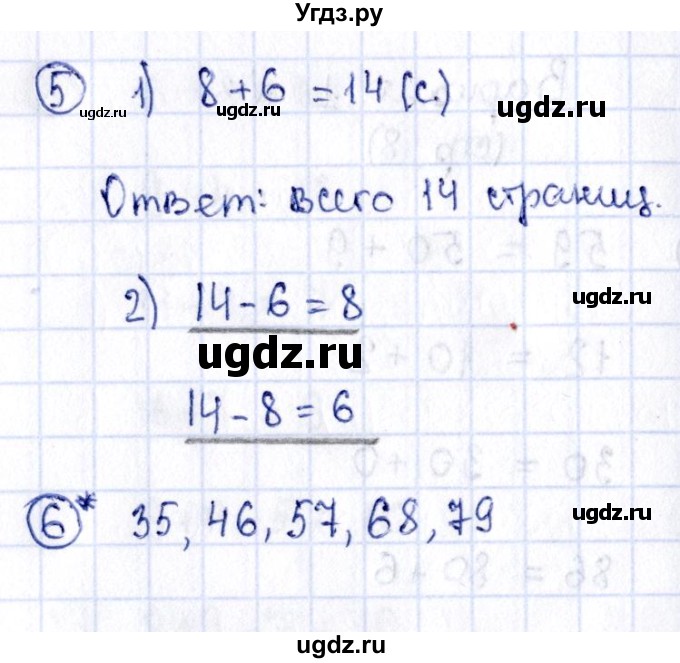 Угдз.ру
5 1) 8 + 6 = 14 (с.) ugdz.ru
ugdz.ru ugdz.ru
Ответ: всего 14 страниц.
2) 14 - 6 = 8 ugdz.ru
ugdz.ru
14 - 8 = 6
6* 35, 46, 57, 68, 79 ugdz.ru
ugdz.ru